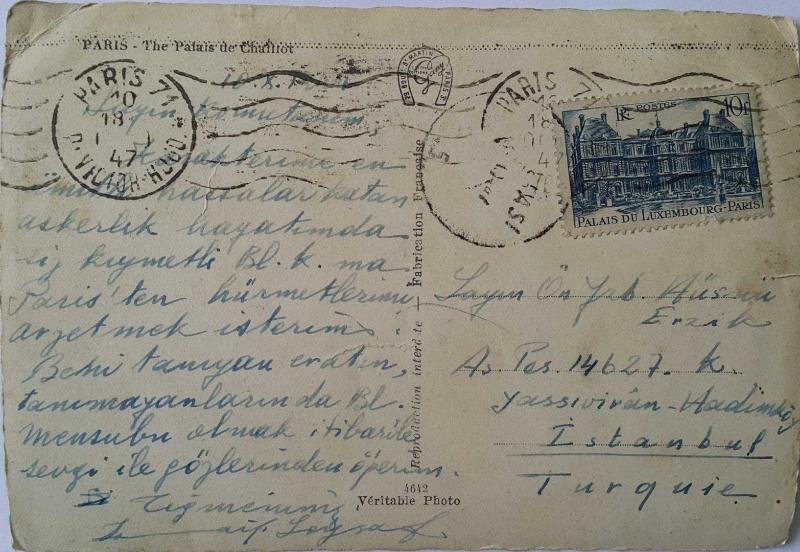 PARIS - The Palais de Chaillot
PARIS 71
18
47
PARIS 71
18
47
POSTES
10f
PALAIS DU LUXEMBOURG-PARIS
Sayın komutanım,
Karakterime en
hassalar katan
askerlik hayatımda
siz kıymetli Bl. K. ma
Paris'ten hürmetlerimi
arzetmek isterim.
Beni tanıyan eratın,
tanımayanlarında Bl.
Mensubu olmak itibarile
sevgi ile gözlerinden öperim.
Teğmeniniz
Reproduction interdite — Fabrication Française
4642
Véritable Photo
Sayın Ön Yzb. Hüsnü
Erzik
As Pos. 14627. K.
Yassıvirân-Hadımköy
İstanbul
Turquie